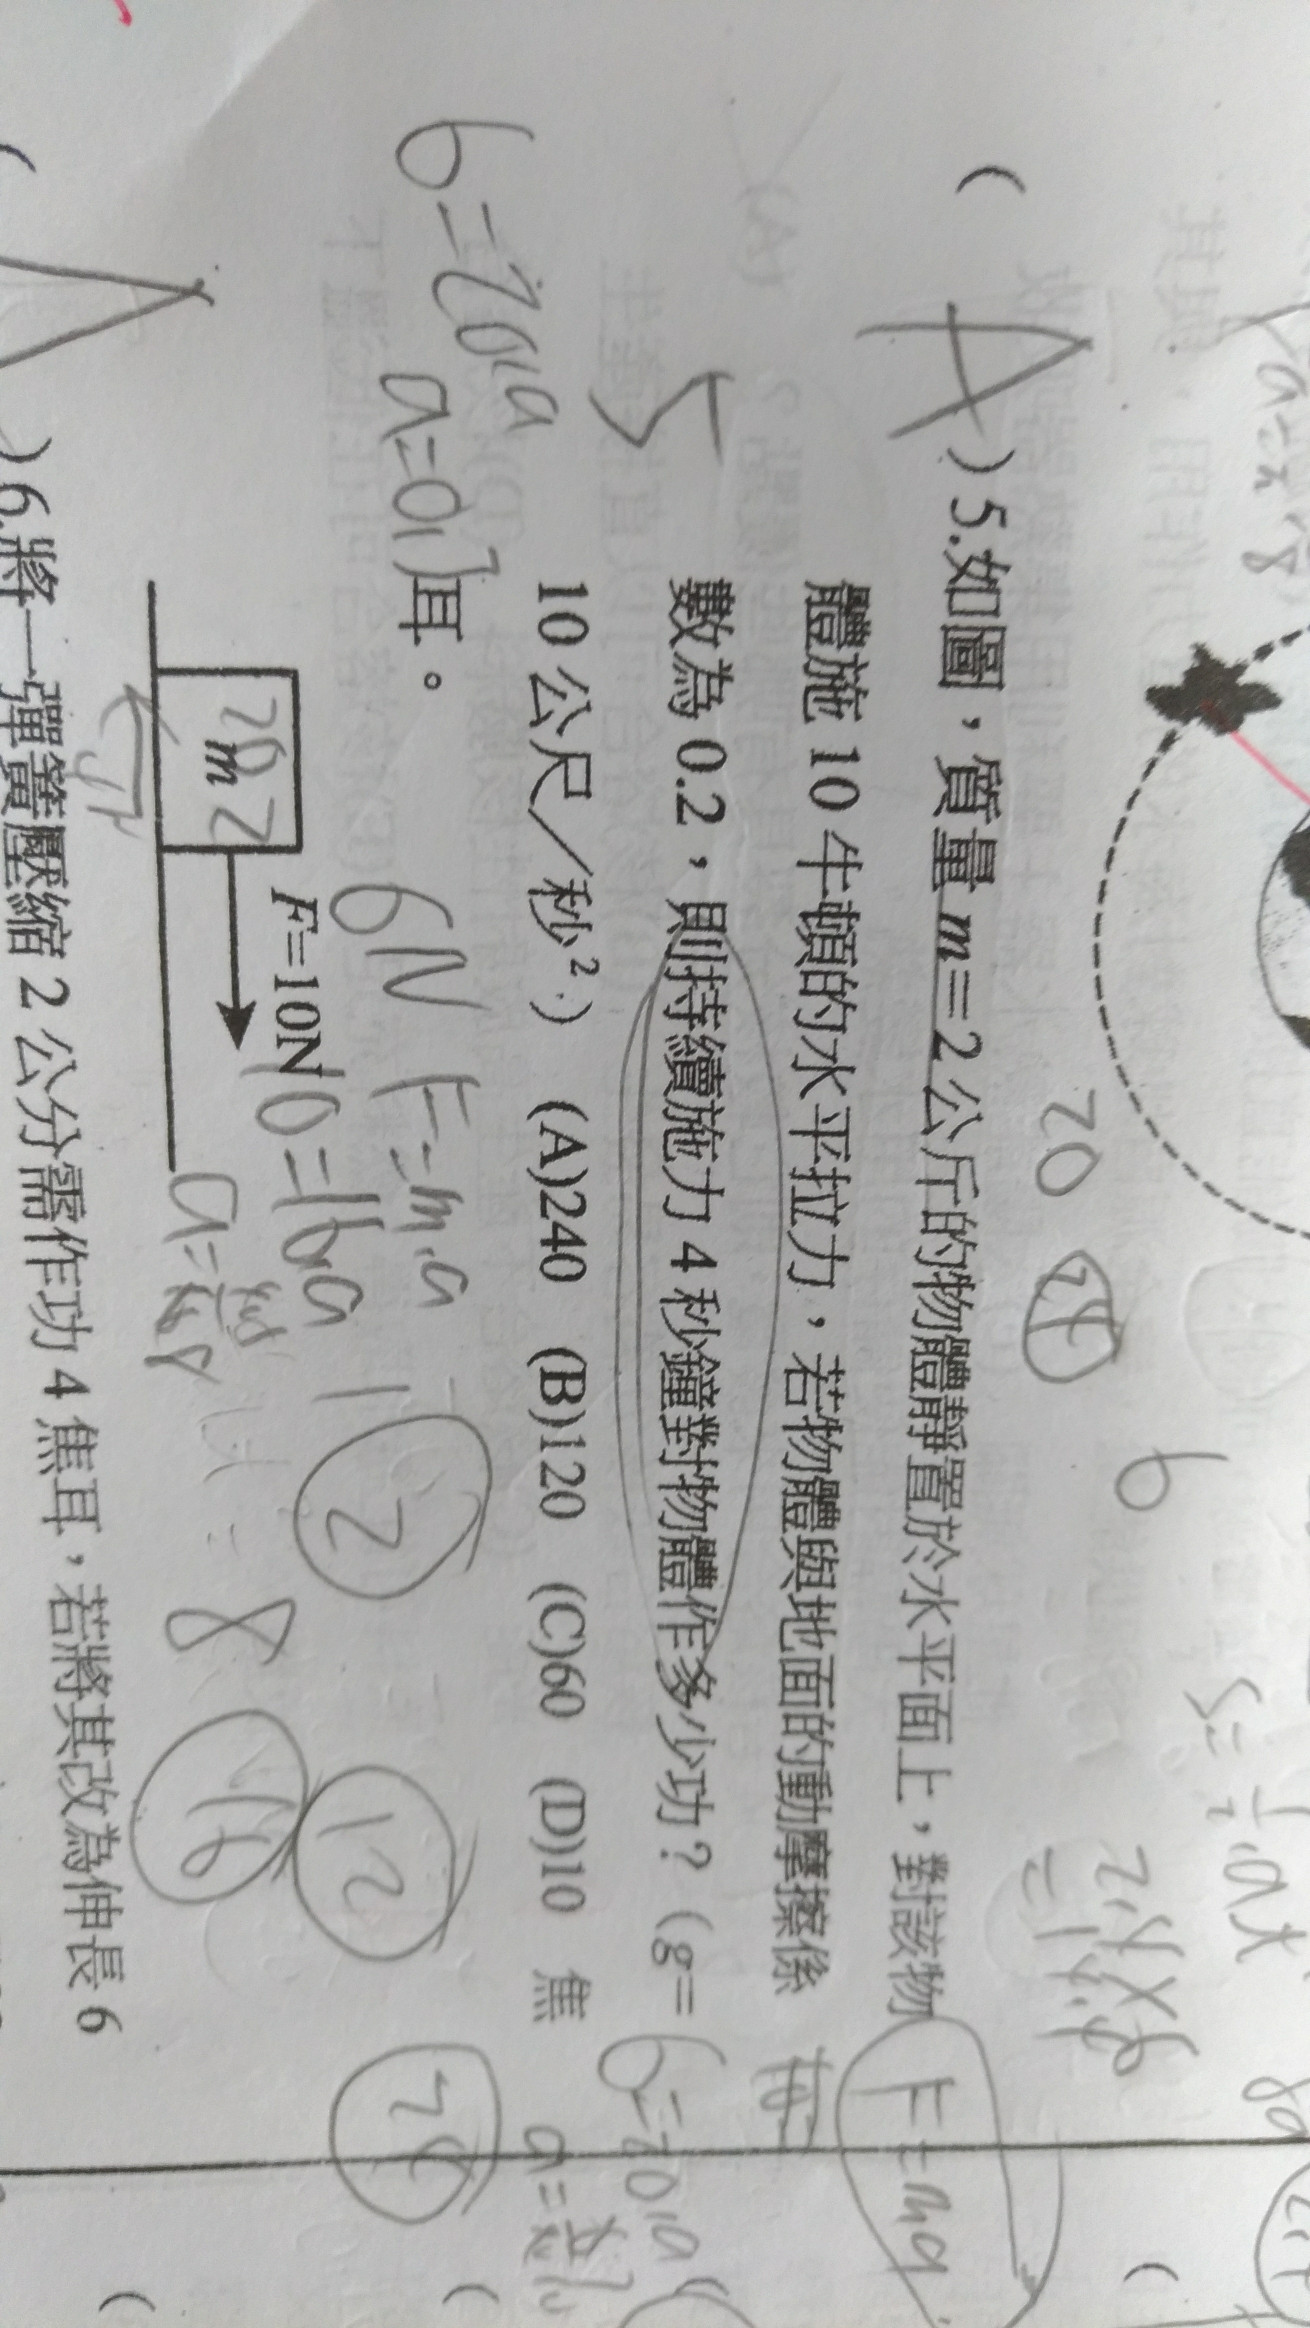 (A)5.如圖，質量m=2公斤的物體靜置於水平面上，對該物
體施10牛頓的水平拉力，若物體與地面的動摩擦係
數為0.2，則持續施力4秒鐘對物體作多少功？（g=
10公尺／秒²） (A)240 (B)120 (C)60 (D)10 焦
耳。
m
F=10N
)6.將一彈簧壓縮2公分需作功4焦耳，若將其改為伸長6
6N
F=m.a
10=16a
6=20.a
a=0.3
20
24
6
2
12
F=ma